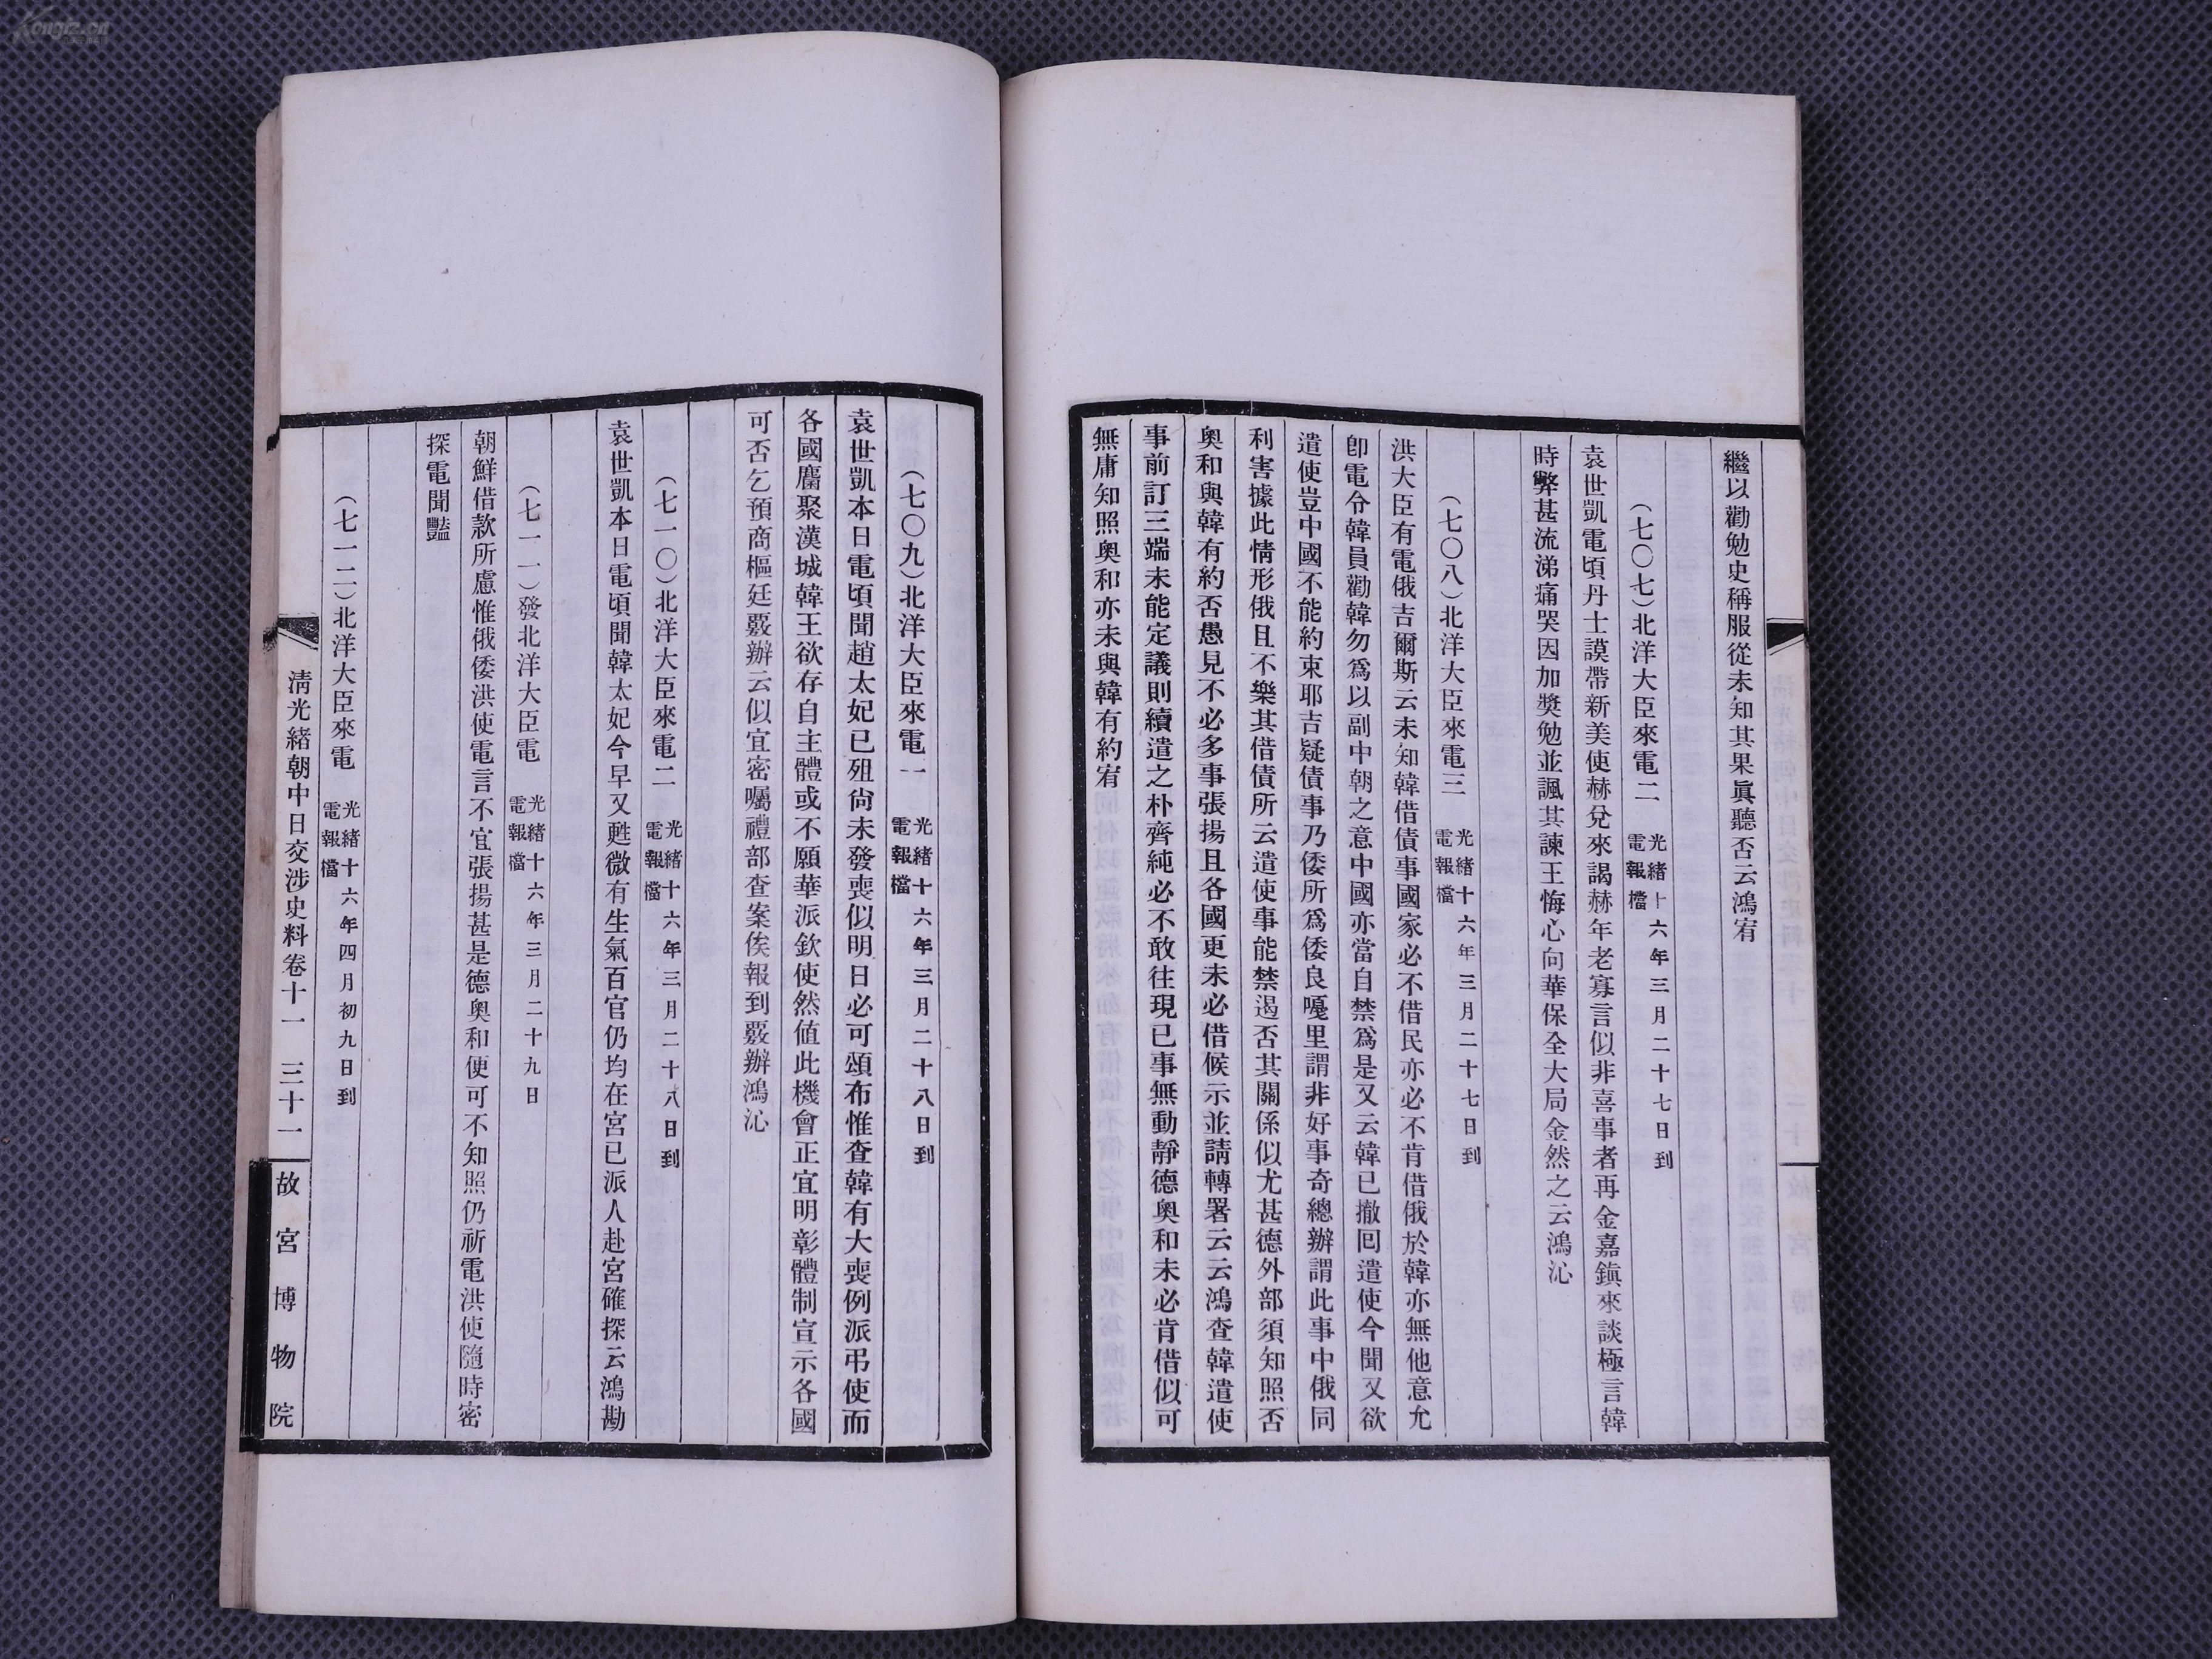 繼以勸勉史稱服從未知其果眞聽否云鴻宥
(七〇七)北洋大臣來電二 光緒十六年三月二十七日到 電報檔
袁世凱電頃丹士謨帶新美使赫兌來謁赫年老寡言似非喜事者再金嘉鎭來談極言韓
時弊甚流涕痛哭因加獎勉並諷其諫王悔心向華保全大局金然之云鴻沁
(七〇八)北洋大臣來電三 光緒十六年三月二十七日到 電報檔
洪大臣有電俄吉爾斯云未知韓借債事國家必不借民亦必不肯借俄於韓亦無他意允
卽電令韓員勸韓勿爲以副中朝之意中國亦當自禁爲是又云韓已撤回遣使今聞又欲
遣使豈中國不能約束耶吉疑債事乃倭所爲倭良嘎里謂非好事奇總辦謂此事中俄同
利害據此情形俄且不樂其借債所云遣使事能禁遏否其關係似尤甚德外部須知照否
奧和與韓有約否愚見不必多事張揚且各國更未必借候示並請轉署云云鴻查韓遣使
事前訂三端未能定議則續遣之朴齊純必不敢往現已事無動靜德奧和未必肯借似可
無庸知照奧和亦未與韓有約宥
(七〇九)北洋大臣來電一 光緒十六年三月二十八日到 電報檔
袁世凱本日電頃聞趙太妃已殂尙未發喪似明日必可頒布惟查韓有大喪例派弔使而
各國麕聚漢城韓王欲存自主體或不願華派欽使然値此機會正宜明彰體制宣示各國
可否乞預商樞廷覈辦云似宜密囑禮部查案俟報到覈辦鴻沁
(七一〇)北洋大臣來電二 光緒十六年三月二十八日到 電報檔
袁世凱本日電頃聞韓太妃今早又甦微有生氣百官仍均在宮已派人赴宮確探云鴻勘
(七一一)發北洋大臣電 光緒十六年三月二十九日 電報檔
朝鮮借款所慮惟俄倭洪使電言不宜張揚甚是德奧和便可不知照仍祈電洪使隨時密
探電聞豔
(七一二)北洋大臣來電 光緒十六年四月初九日到 電報檔
淸光緒朝中日交涉史料卷十一 三十一 故宮博物院
Kongfz.cn